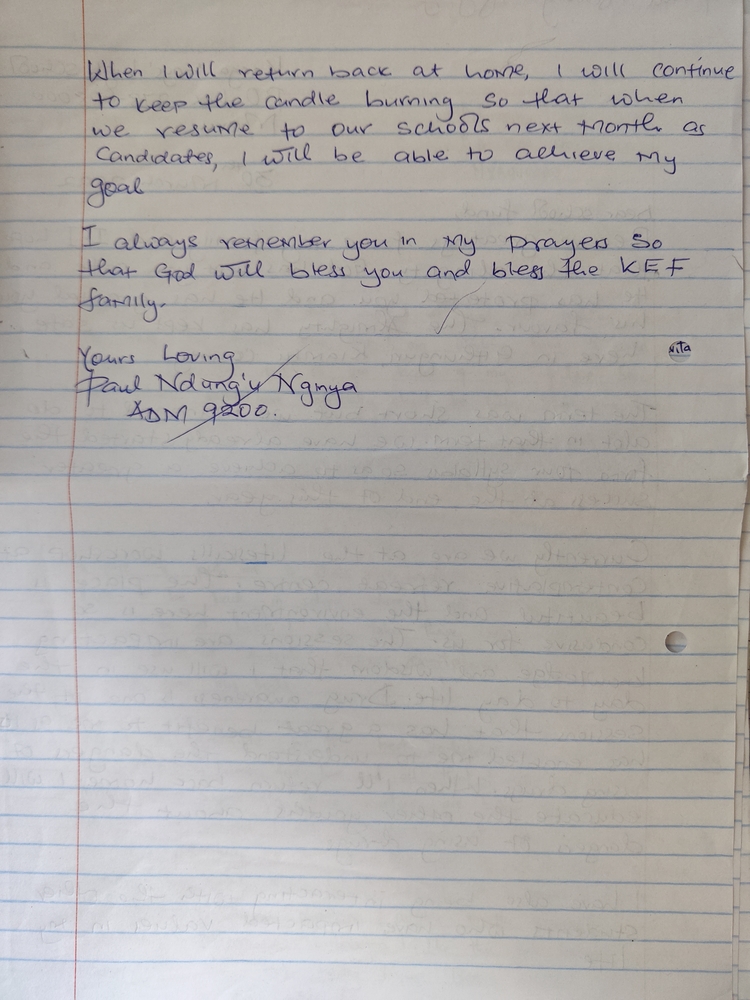 When I will return back at home, I will continue
to keep the candle burning so that when
we resume to our schools next month as
Candidates, I will be able to achieve my
goal
I always remember you in my prayers so
that God will bless you and bless the KEF
family.
Yours Loving
Paul Ndung'u Ngnya
ADM 9200.
Nita